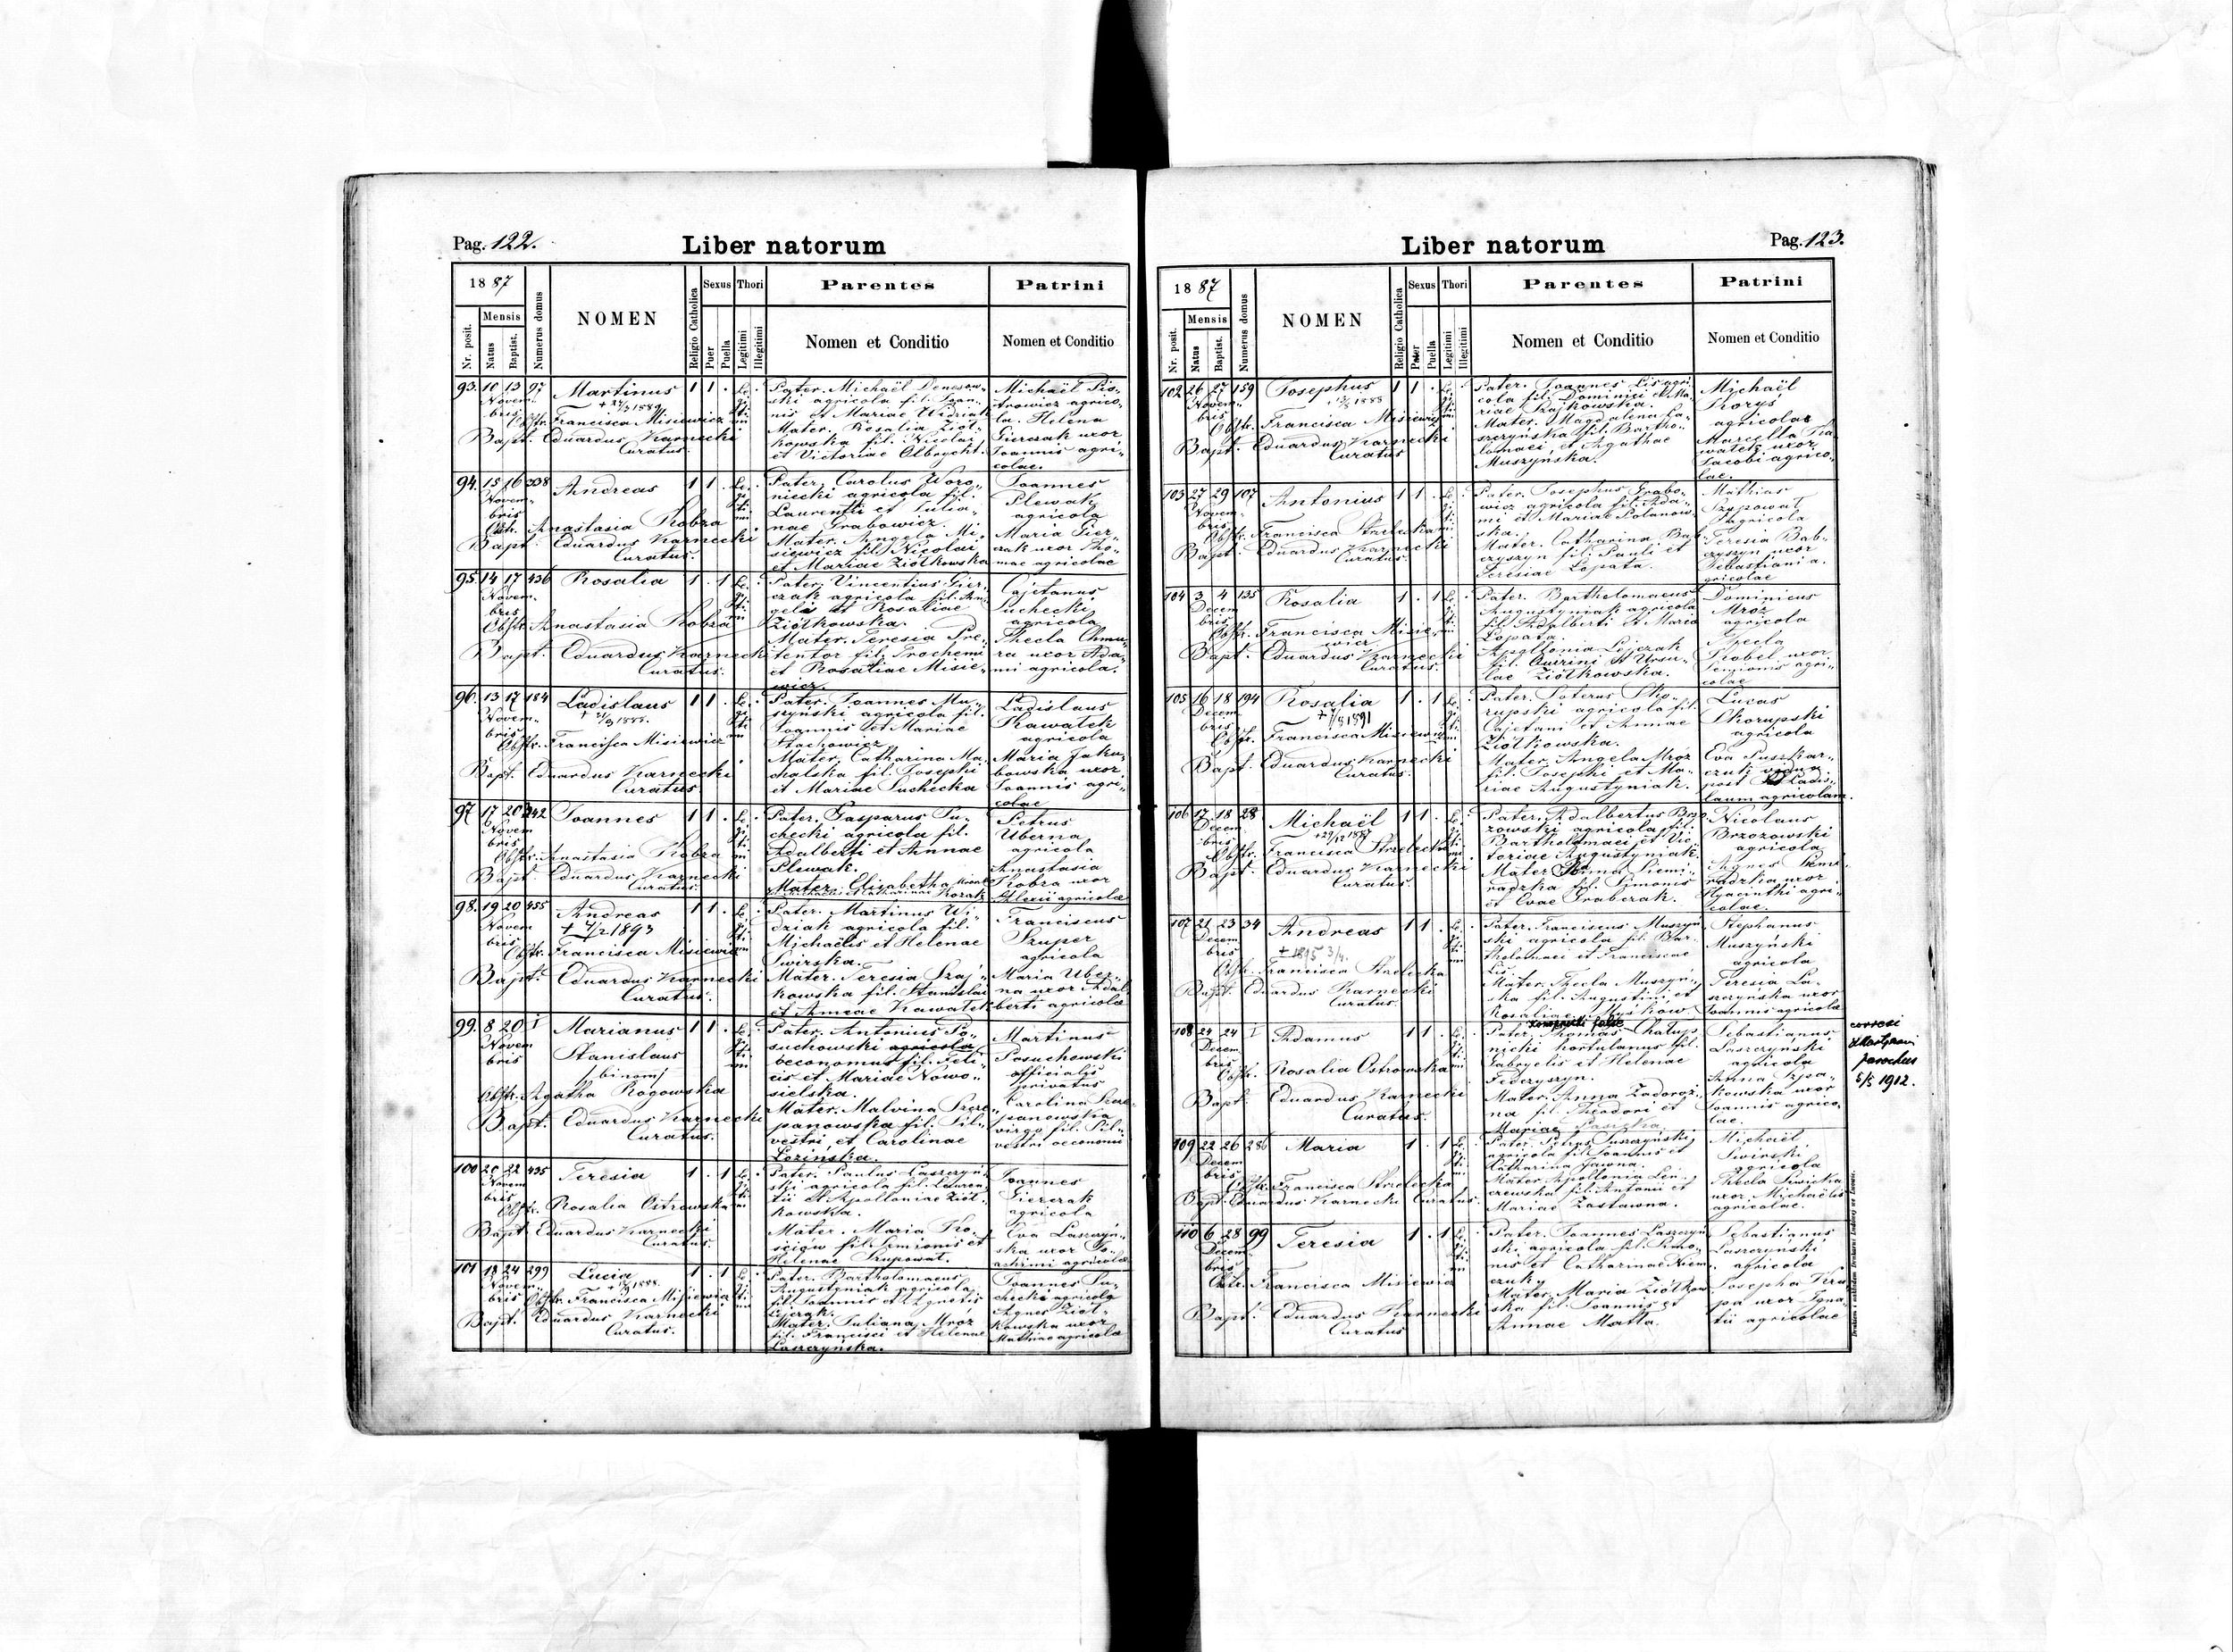 Pag. 122.
Liber natorum
1887
Mensis
Nr. posit.
Natus
Baptist.
Numerus domus
NOMEN
Religio Catholica
Sexus
Puer
Puella
Thori
Legitimi
Illegitimi
Parentes
Nomen et Conditio
Patrini
Nomen et Conditio
93. 10 13 97 Martinus 1 1 .
Novem-
bris
Obstr. Francisca Misiewicz
Bapt. Eduardus Karnecki
Curatus.
Pater. Michaël
ski agricola fil. Joan-
nis et Mariae Widziak
Mater. Rosalia Ziół-
kowska fil. Nicolai
et Victoriae Olbrycht.
Michaël Pis-
trowicz agrico-
la. Helena
Gierczak uxor
Joannis agri-
colae.
94. 15 16 238 Andreas 1 1 .
Novem-
bris
Obstr. Anastasia Kobza
Bapt. Eduardus Karnecki
Curatus.
Pater. Carolus Woro-
niecki agricola fil.
Laurentii et Julia-
nae Grabowicz.
Mater. Angela Mi-
siewicz fil. Nicolai
et Mariae Ziółkowska
Joannes
Plewak
agricola
Maria Gier-
czak uxor Tho-
mae agricolae
95. 14 17 436 Rosalia 1 . 1
Novem-
bris
Obstr. Anastasia Kobza
Bapt. Eduardus Karnecki
Curatus.
Pater. Vincentius Gier-
czak agricola fil. An-
geli et Rosaliae
Ziółkowska.
Mater. Teresia Pre-
tentor fil. Trochemi
et Rosaliae Misie-
wicz.
Cajetanus
Suchecki
agricola
Thecla Chmu-
ra uxor Ada-
mi agricola.
96. 13 17 184 Ladislaus 1 1 .
Novem-
bris
Obstr. Francisca Misiewicz
Bapt. Eduardus Karnecki
Curatus.
Pater. Joannes Mu-
szyński agricola fil.
Joannis et Mariae
Stachowicz
Mater. Catharina Ma-
chalska fil. Josephi
et Mariae Suchecka
Ladislaus
Kawatek
agricola
Maria Jaku-
bowska uxor
Joannis agri-
colae
97 17 20 242 Joannes 1 1 .
Novem
bris
Obstr. Anastasia Kobza
Bapt. Eduardus Karnecki
Curatus.
Pater. Gasparus Su-
checki agricola fil.
Adalberti et Annae
Plewak.
Mater. Elisabetha
Petrus
Uberna
agricola
Anastasia
Kobza uxor
Alexii agricolae
98. 19 20 455 Andreas 1 1 .
Novem
bris
+ 7/2 1893
Obstr. Francisca Misiewicz
Bapt. Eduardus Karnecki
Curatus.
Pater. Martinus Wi-
dziak agricola fil.
Michaëlis et Helenae
Świrska.
Mater. Teresia Szaj-
kowska fil. Stanislai
et Annae Kawatek
Franciscus
Szuper
agricola
Maria Uber-
na uxor Adal-
berti agricolae
99. 8 20 I Marianus 1 1 .
Novem
bris
Stanislaus
/binom/
Obstr. Agatha Rogowska
Bapt. Eduardus Karnecki
Curatus.
Pater. Antonius Po-
suchowski agricola
oeconomus fil. Feli-
cis et Mariae Nowo-
sielska.
Mater. Malvina Szcze-
panowska fil. Sil-
vestri et Carolinae
Łozińska.
Martinus
Posuchowski
officialis
privatus
Carolina Szcze-
panowska
virgo fil. Sil-
vestri oeconomi
100 20 22 435 Teresia 1 . 1
Novem
bris
Obstr. Rosalia Ostrowska
Bapt. Eduardus Karnecki
Curatus.
Pater. Paulus Laszczyń-
ski agricola fil. Lauren-
tii et Apolloniae Ziół-
kowska.
Mater. Maria Ko-
ściów fil. Semionis et
Helenae Szupowat.
Joannes
Gierczak
agricola
Eva Laszczyń-
ska uxor Jo-
achimi agricolae
101 18 24 299 Lucia 1 . 1
Novem
bris
Obstr. Francisca Misiewicz
Bapt. Eduardus Karnecki
Curatus.
Pater. Bartholomaeus
Augustyniak agricola
fil. Joannis et Agnetis
Mater. Juliana Mroz
fil. Francisci et Helenae
Laszczyńska.
Joannes Su-
checki agricola
Agnes Ziół-
kowska uxor
Mathiae agricolae
Pag. 123.
Liber natorum
1887
Mensis
Nr. posit.
Natus
Baptist.
Numerus domus
NOMEN
Religio Catholica
Sexus
Puer
Puella
Thori
Legitimi
Illegitimi
Parentes
Nomen et Conditio
Patrini
Nomen et Conditio
102 26 27 159 Josephus 1 1 .
Novem-
bris
Obstr. Francisca Misiewicz
Bapt. Eduardus Karnecki
Curatus
Pater. Joannes Lis agri-
cola fil. Dominici et Ma-
riae Szajkowska.
Mater. Magdalena La-
szczyńska fil. Bartho-
lomaei et Agathae
Muszyńska.
Michaël
Koryś
agricola
Marcella Ka-
watek uxor
Jacobi agrico-
lae.
103 27 29 107 Antonius 1 1 .
Novem-
bris
Obstr. Francisca Strzelecka
Bapt. Eduardus Karnecki
Curatus.
Pater. Josephus Grabo-
wicz agricola fil. Ada-
mi et Mariae Polanow-
ska.
Mater. Catharina Bab-
czyszyn fil. Pauli et
Teresiae Łopata.
Mathias
Szupowat
agricola
Teresia Bab-
czyszyn uxor
Sebastiani a-
gricolae
104 3 4 135 Rosalia 1 . 1
Decem
bris
Obstr. Francisca Misie-
wicz
Bapt. Eduardus Karnecki
Curatus.
Pater. Bartholomaeus
Augustyniak agricola
fil. Adalberti et Maria
Łopata.
Apollonia Lojczak
fil. Quirini et Ursu-
lae Ziółkowska.
Dominicus
Mróz
agricola
Thecla
Wrobel uxor
Semionis agri-
colae
105 16 18 194 Rosalia 1 . 1
Decem
bris
+ 7/8 1891
Obstr. Francisca Misiewicz
Bapt. Eduardus Karnecki
Curatus.
Pater. Soterus Sko-
rupski agricola fil.
Cajetani et Annae
Ziółkowska.
Mater. Angela Mróz
fil. Josephi et Ma-
riae Augustyniak.
Lucas
Skorupski
agricola
Eva Puszkar-
czuk vidua
post Ladis-
laum agricolam.
106 17 18 28 Michaël 1 1 .
Decem
bris
+ 29/12 1887
Obstr. Francisca Strzelecka
Bapt. Eduardus Karnecki
Curatus.
Pater. Adalbertus Brzo-
zowski agricola fil.
Bartholomaei et Vic-
toriae Augustyniak.
Mater Anna Siemi-
radzka fil. Simonis
et Evae Graberak.
Nicolaus
Brzozowski
agricola
Agnes Siemi-
radzka uxor
Hyacinthi agri-
colae.
107 21 23 34 Andreas 1 1 .
Decem
bris
+ 1895 3/4.
Obstr. Francisca Strzelecka
Bapt. Eduardus Karnecki
Curatus.
Pater. Franciscus Muszyń-
ski agricola fil. Bar-
tholomaei et Franciscae
Lis.
Mater. Thecla Muszyń-
ska fil. Augustini et
Rosaliae
Stephanus
Muszyński
agricola
Teresia La-
szczyńska uxor
Joannis agricolae
108 24 24 I Adamus 1 1 .
Decem
bris
Obstr. Rosalia Ostrowska
Bapt. Eduardus Karnecki
Curatus.
Pater. Thomas Chałup-
nicki hortulanus fil.
Gabryelis et Helenae
Federyszyn.
Mater. Anna Zadoroż-
na fil. Theodori et
Mariae
Sebastianus
Laszczyński
agricola
Anna Szpa-
kowska uxor
Joannis agrico-
lae.
correxi
parochus
5/5 1912.
109 22 26 286 Maria 1 . 1
Decem
bris
Obstr. Francisca Strzelecka
Bapt. Eduardus Karnecki Curatus.
Pater. Petrus Suszczyński
agricola fil. Joannis et
Catharina Jawna.
Mater Apollonia Len-
czewska fil. Antonii et
Mariae Zastawna.
Michaël
Świrski
agricola
Thecla Siwicka
uxor Michaëlis
agricolae.
110 6 28 99 Teresia 1 . 1
Decem
bris
Obstr. Francisca Misiewicz
Bapt. Eduardus Karnecki
Curatus
Pater. Joannes Laszczyń-
ski agricola fil. Simo-
nis et Catharinae Niem-
czuk
Mater. Maria Ziółkow-
ska fil. Joannis et
Annae Matla.
Sebastianus
Laszczyński
agricola
Josepha Kru-
pa uxor Igna-
tii agricolae